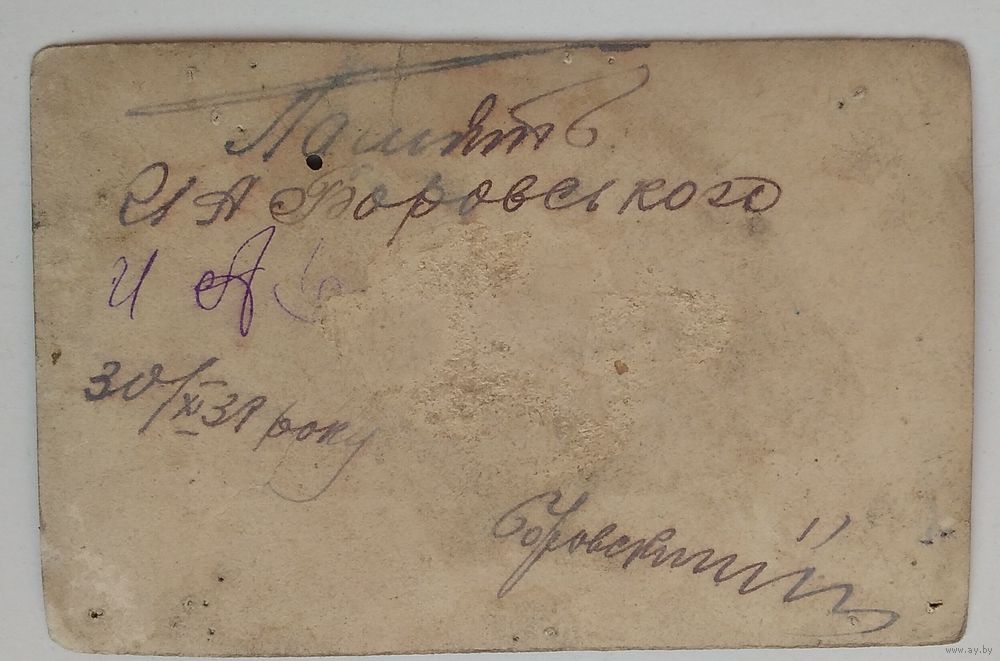 Память
И А Боровського
И А Б
30/XI 31 року
Боровский
www.ay.by